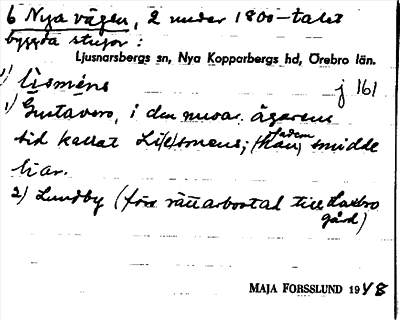 6 Nya vägen, 2 under 1800-talet
byggda stugor:
Ljusnarsbergs sn, Nya Kopparbergs hd, Örebro län.
1) Lisméns j 161
1) Gustavero, i den nuvar. ägarens
tid kallat Li(e)smens; (han) smidde
liar.
2) Lundby (förr rättarbostad till Laxbro
gård)
MAJA FORSSLUND 1948